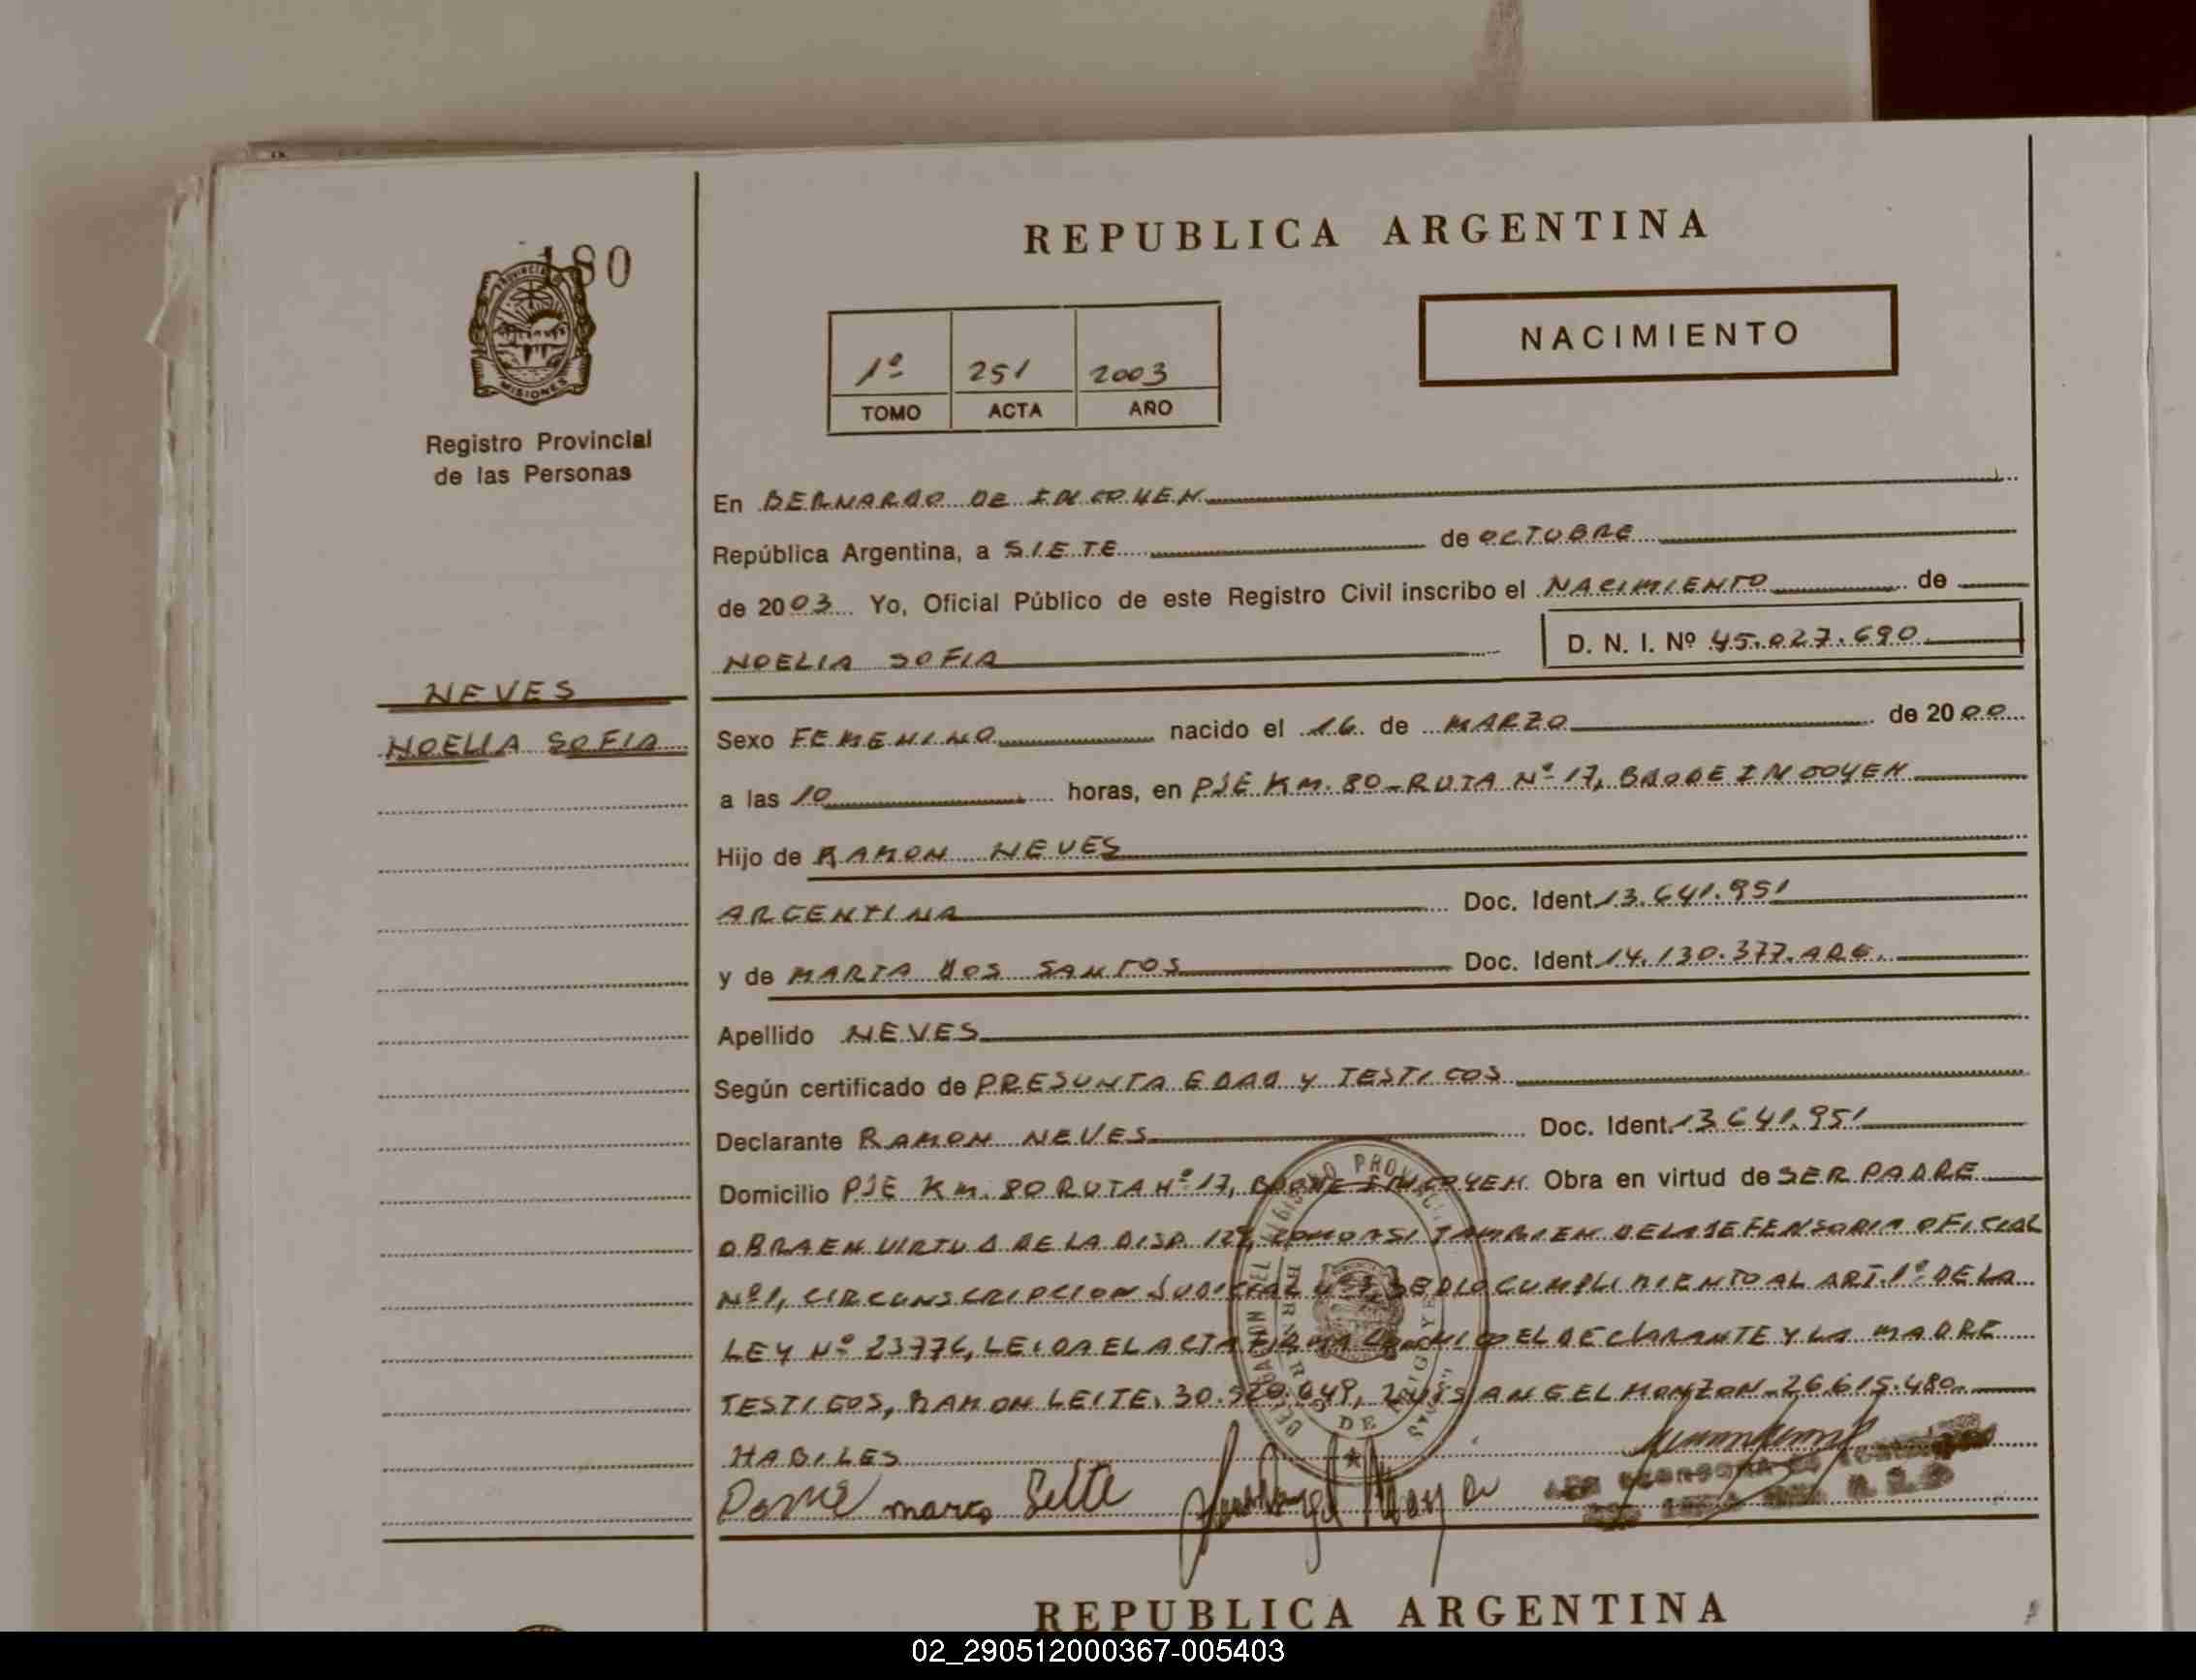 180
PROVINCIA DE
MISIONES
Registro Provincial
de las Personas
NEVES
NOELIA SOFIA
REPUBLICA ARGENTINA
NACIMIENTO
1º 251 2003
TOMO ACTA AÑO
En BERNARDO DE IRIGOYEN
República Argentina, a SIETE de OCTUBRE
de 2003 Yo, Oficial Público de este Registro Civil inscribo el NACIMIENTO de
NOELIA SOFIA D. N. I. Nº 45.027.690
Sexo FEMENINO nacido el 16 de MARZO de 2000
a las 10 horas, en PJE KM. 80-RUTA Nº 17, BDO DE IRIGOYEN
Hijo de RAMON NEVES
ARGENTINA Doc. Ident. 13.641.951
y de MARIA DOS SANTOS Doc. Ident. 14.130.377.ARG.
Apellido NEVES
Según certificado de PRESUNTA EDAD Y TESTIGOS
Declarante RAMON NEVES Doc. Ident. 13.641.951
Domicilio PJE KM. 80 RUTA Nº 17, BDO DE IRIGOYEN Obra en virtud de SER PADRE
OBRA EN VIRTUD DE LA DISP. COMO ASI TAMBIEN DE LA DEFENSORIA OFICIAL
Nº 1, CIRCUNSCRIPCION JUDICIAL SE DIO CUMPLIMIENTO AL ART. 1º DE LA
LEY Nº 23776, LEIDA EL ACTA FIRMA CONMIGO EL DECLARANTE Y LA MADRE
TESTIGOS, RAMON LEITE, 30.520.049, LUIS ANGEL MONZON-26.615.480
HABILES
REPUBLICA ARGENTINA
02_290512000367-005403